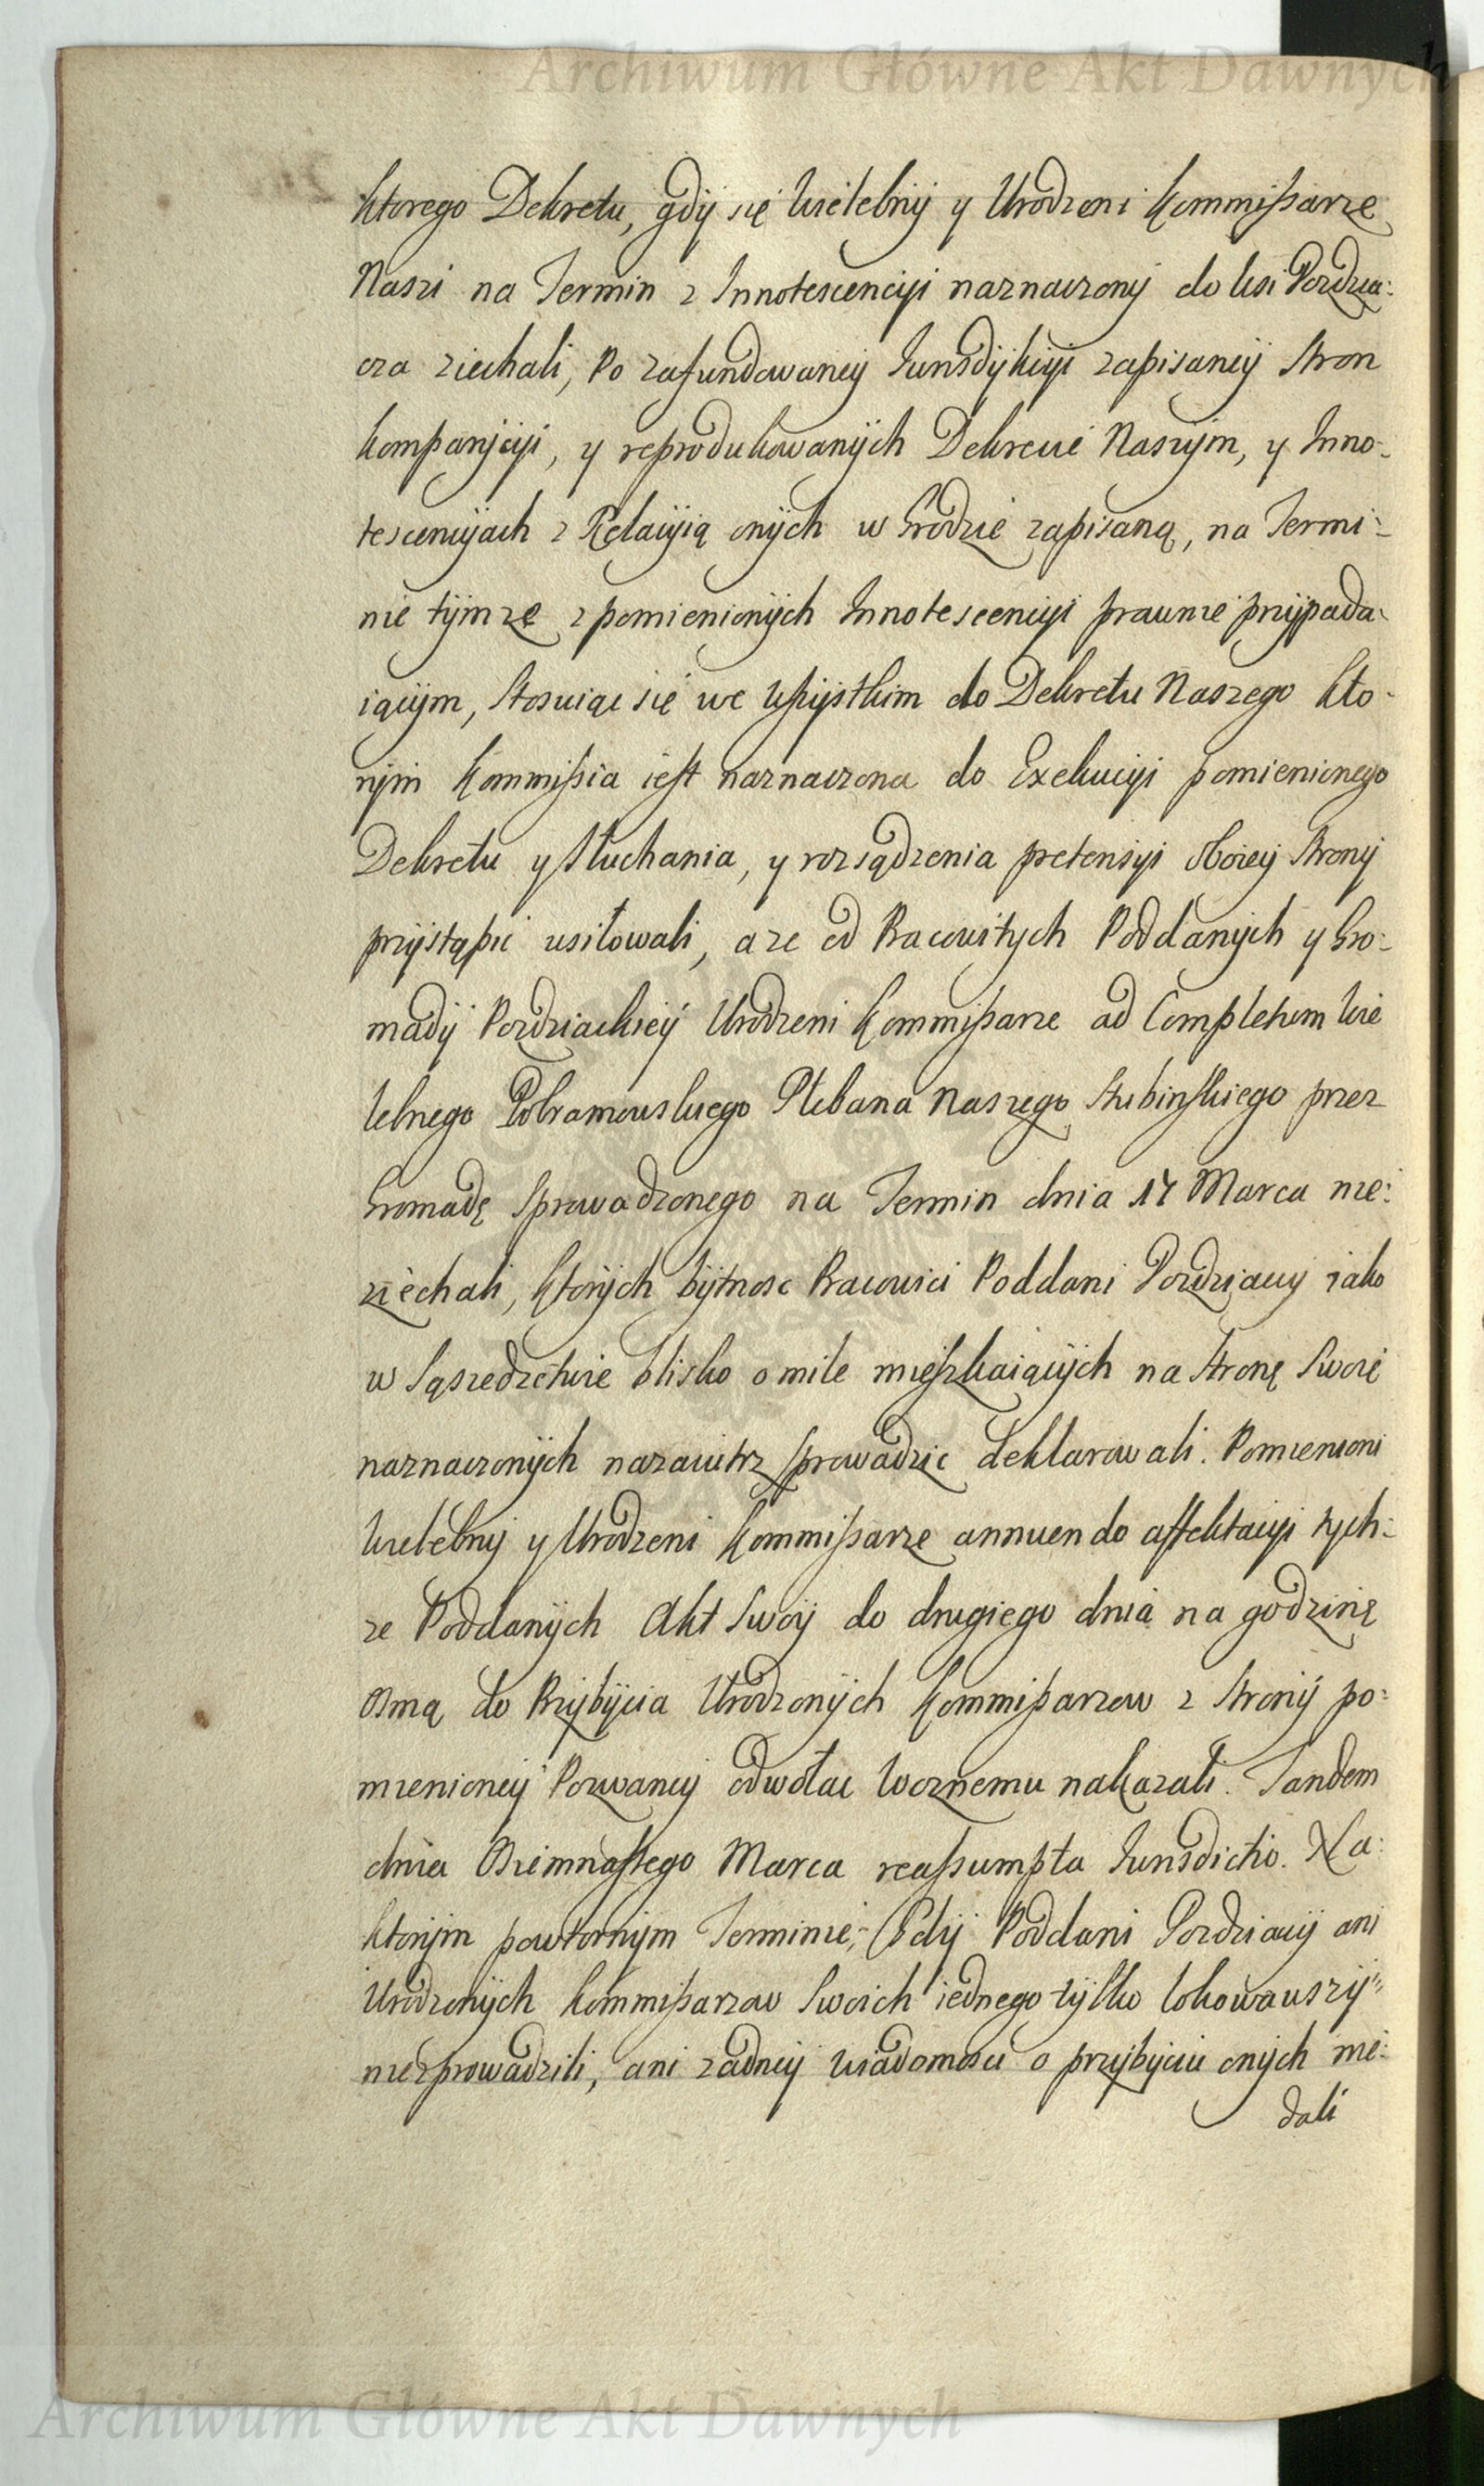 Archiwum Główne Akt Dawnych
ktorego Dekretu, gdÿ się Wielebnÿ y Urodzeni Kommißarze
Naszi na Termin z Innotescencÿi naznaczonÿ do Wsi Pozdzia:
cza ziechali, Po zafundowaneÿ Jurisdÿkcÿi zapisaneÿ Stron
Kompanÿcÿi, y reprodukowanÿch Dekrecie Naszÿm, y Inno-
tescencÿach z Relacÿią onÿch w Grodzie zapisaną, na Termi:
nie tÿmze z pomienionÿch Innotescencÿi prawnie prziÿpada:
iącÿm, Stosuiąc się we Wszÿstkim do Dekretu Naszego kto-
rÿm Kommißia iest naznaczona do Exekucÿi pomienionego
Dekretu y Słuchania, y rozsądzenia pretensÿi oboieÿ Stronÿ
przÿstąpic usiłowali, a ze od Pracowitych Poddanÿch y Gro:
madÿ Pozdziackieÿ Urodzeni Kommißarze ad Completum Wie
lebnego Dobramowskiego Plebana Naszego Stubinskiego przez
Gromadę Sprowadzonego na Termin dnia 17 Marca nie:
ziechali, ktorÿch bÿtnosc Pracowici Poddani Pozdziaccÿ iako
w Sąsziedzctwie blisko o mile mieszkaiącÿch na Stronę Swoię
naznaczonÿch nazaiutrz Sprowadzic deklarowali. Pomienioni
Wielebnÿ y Urodzeni Kommißarze annuendo affektacÿi tych:
ze Poddanÿch Akt Swoÿ do drugiego dnia na godzinę
Osmą do Przÿbÿcia Urodzonÿch Kommißarzow z Stronÿ po:
mienioneÿ Pozwaneÿ odwołac Woznemu nakazali. Tandem
dnia Osiemnastego Marca reaßumpta Jurisdictio. Na:
ktorÿm powtornÿm Terminie; Gdÿ Poddani Pozdziaccÿ ani
Urodzonÿch Kommißarzow Swoich iednego tÿlko lokowawszÿ
niesprowadzili, ani zadneÿ wiadomosci o przÿbÿciu onÿch nie:
dali
Archiwum Główne Akt Dawnych